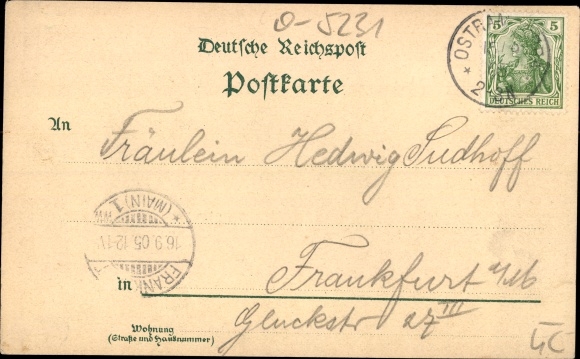 0-5231
Deutsche Reichspost
Postkarte
5 5
DEUTSCHES REICH
An
Fräulein Hedwig Sudhoff
(MAIN) 1
16.9.05.12-1V
FRANK
in Frankfurt a/M
Gluckstr 27 III
Wohnung
(Straße und Hausnummer)